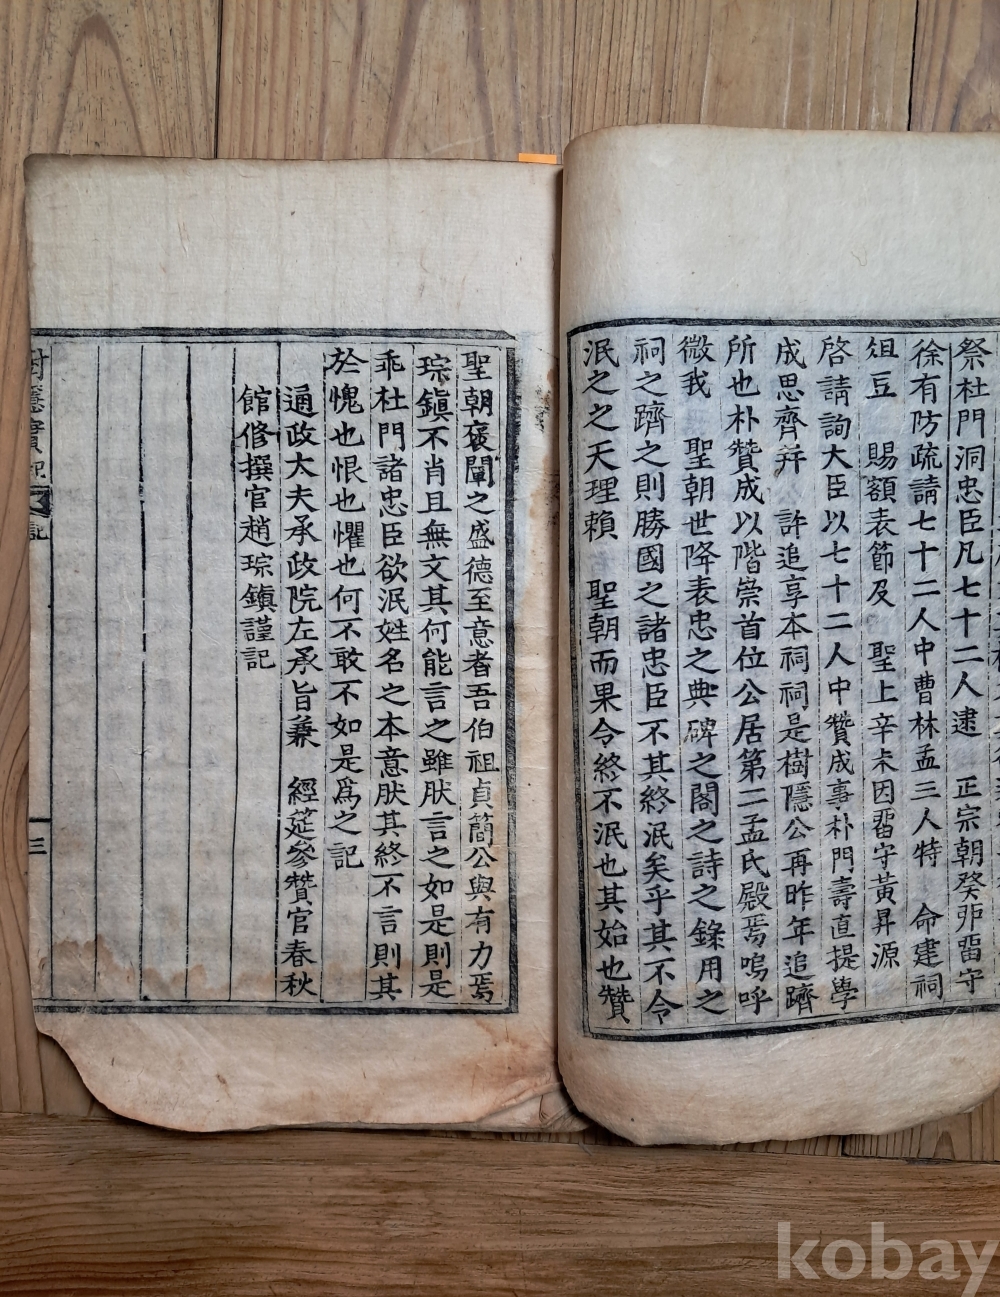 祭杜門洞忠臣凡七十二人逮 正宗朝癸卯留守
徐有防疏請七十二人中曹林孟三人特 命建祠
俎豆 賜額表節及 聖上辛未因留守黃昇源
啓請詢大臣以七十二人中贊成事朴門壽直提學
成思齊并 許追享本祠祠是樹隱公再昨年追躋
所也朴贊成以階崇首位公居第二孟氏殿焉嗚呼
微我 聖朝世降表忠之典碑之閣之詩之錄用之
祠之躋之則勝國之諸忠臣不其終泯矣乎其不令
泯之之天理賴 聖朝而果令終不泯也其始也贊
聖朝褒闡之盛德至意者吾伯祖貞簡公與有力焉
琮鎭不肖且無文其何能言之雖肰言之如是則是
乖杜門諸忠臣欲泯姓名之本意肰其終不言則其
於愧也恨也懼也何不敢不如是爲之記
通政大夫承政院左承旨兼 經筵參贊官春秋
館修撰官趙琮鎭謹記
實記
記
三
kobay